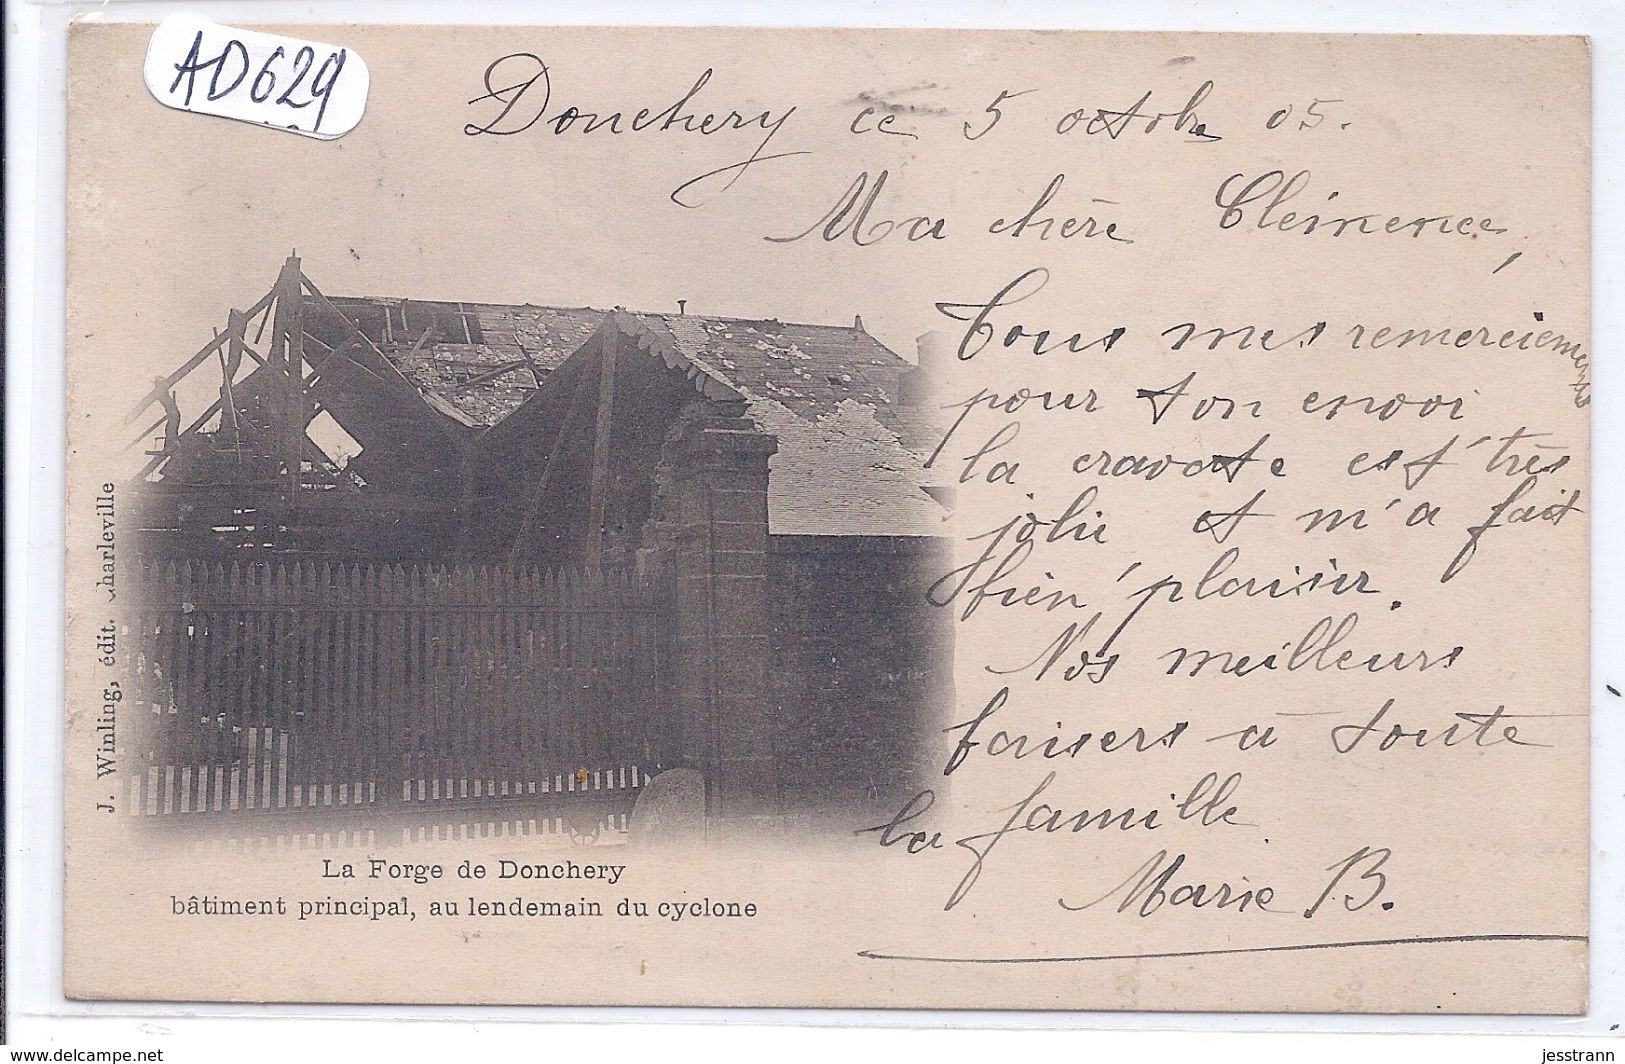 AD629
Donchery ce 5 octobre 05.
Ma chère Clémence,
Tous mes remerciements
pour ton envoi
la cravate est très
jolie et m'a fait
bien plaisir.
Nos meilleurs
baisers à toute
la famille
Marie B.
J. Winling, édit. Charleville
La Forge de Donchery
bâtiment principal, au lendemain du cyclone
www.delcampe.net
jesstrann